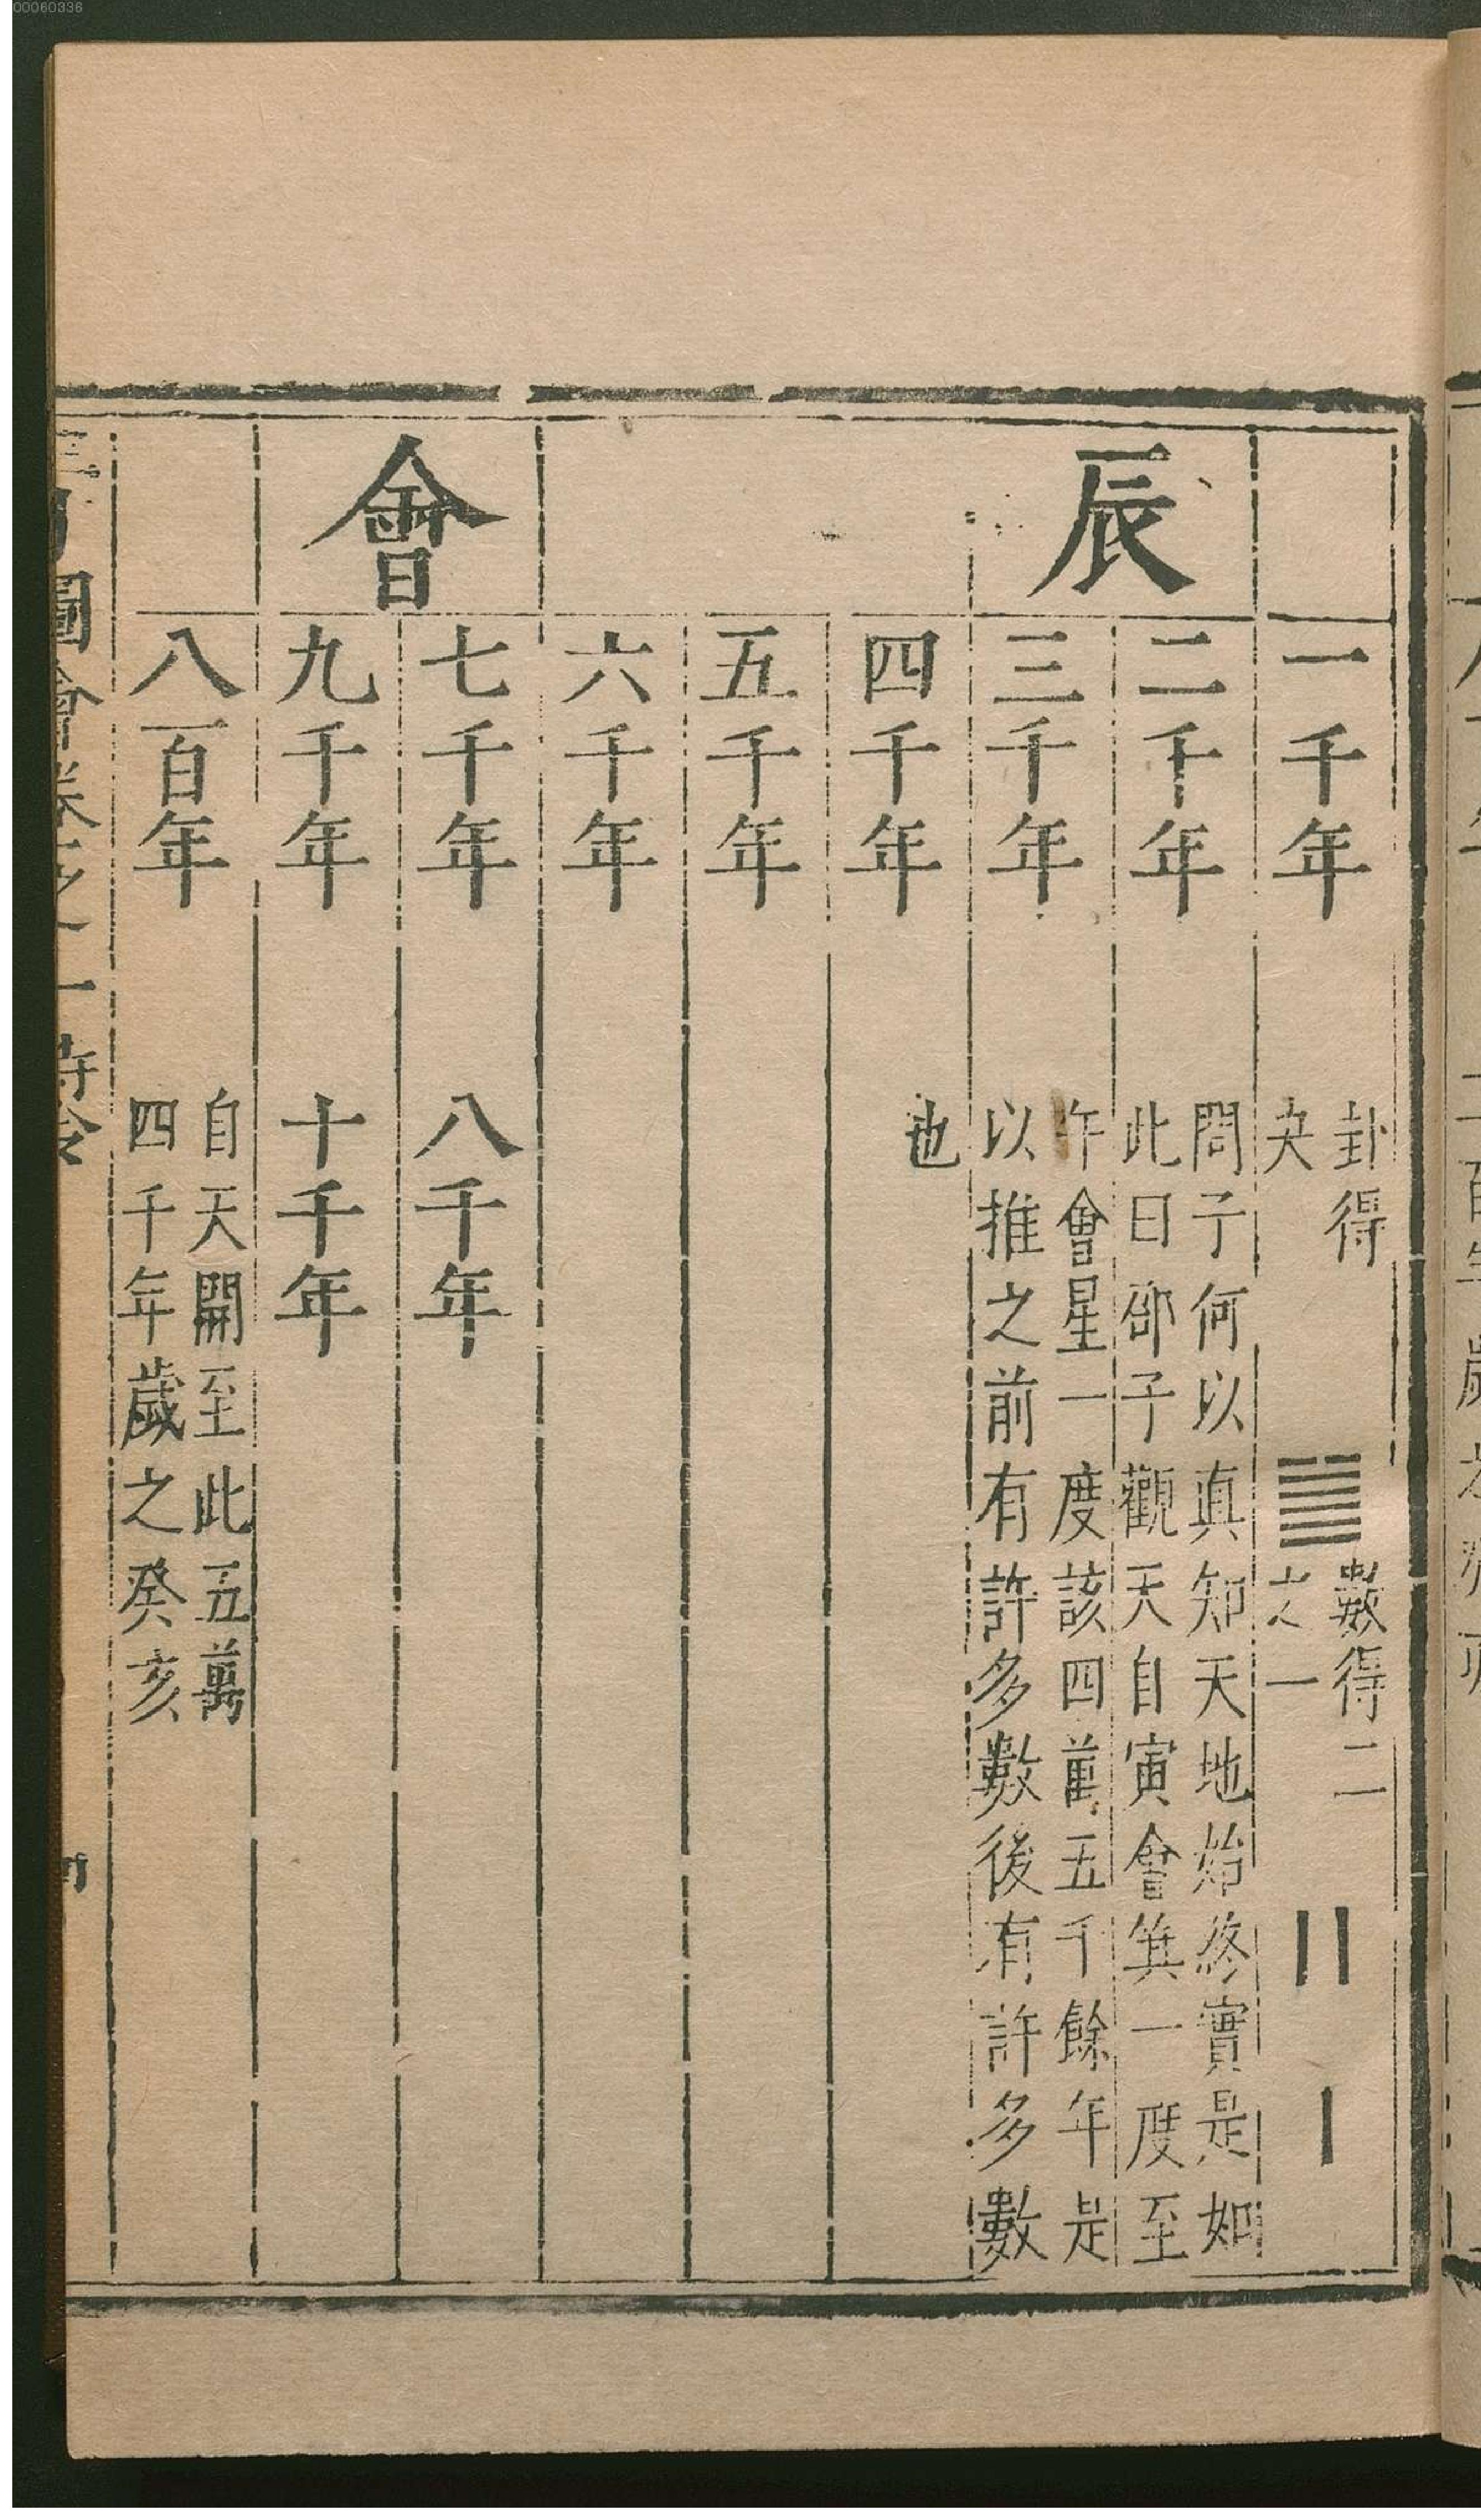 00060336
辰
會
一千年
卦得
夬
數得二
之一
二千年
問子何以真知天地始終實是如
此曰邵子觀天自寅會箕一度至
三千年
午會星一度該四萬五千餘年是
以推之前有許多數後有許多數
四千年
也
五千年
六千年
七千年
八千年
九千年
十千年
八百年
自天開至此五萬
四千年歲之癸亥
圖會
時令